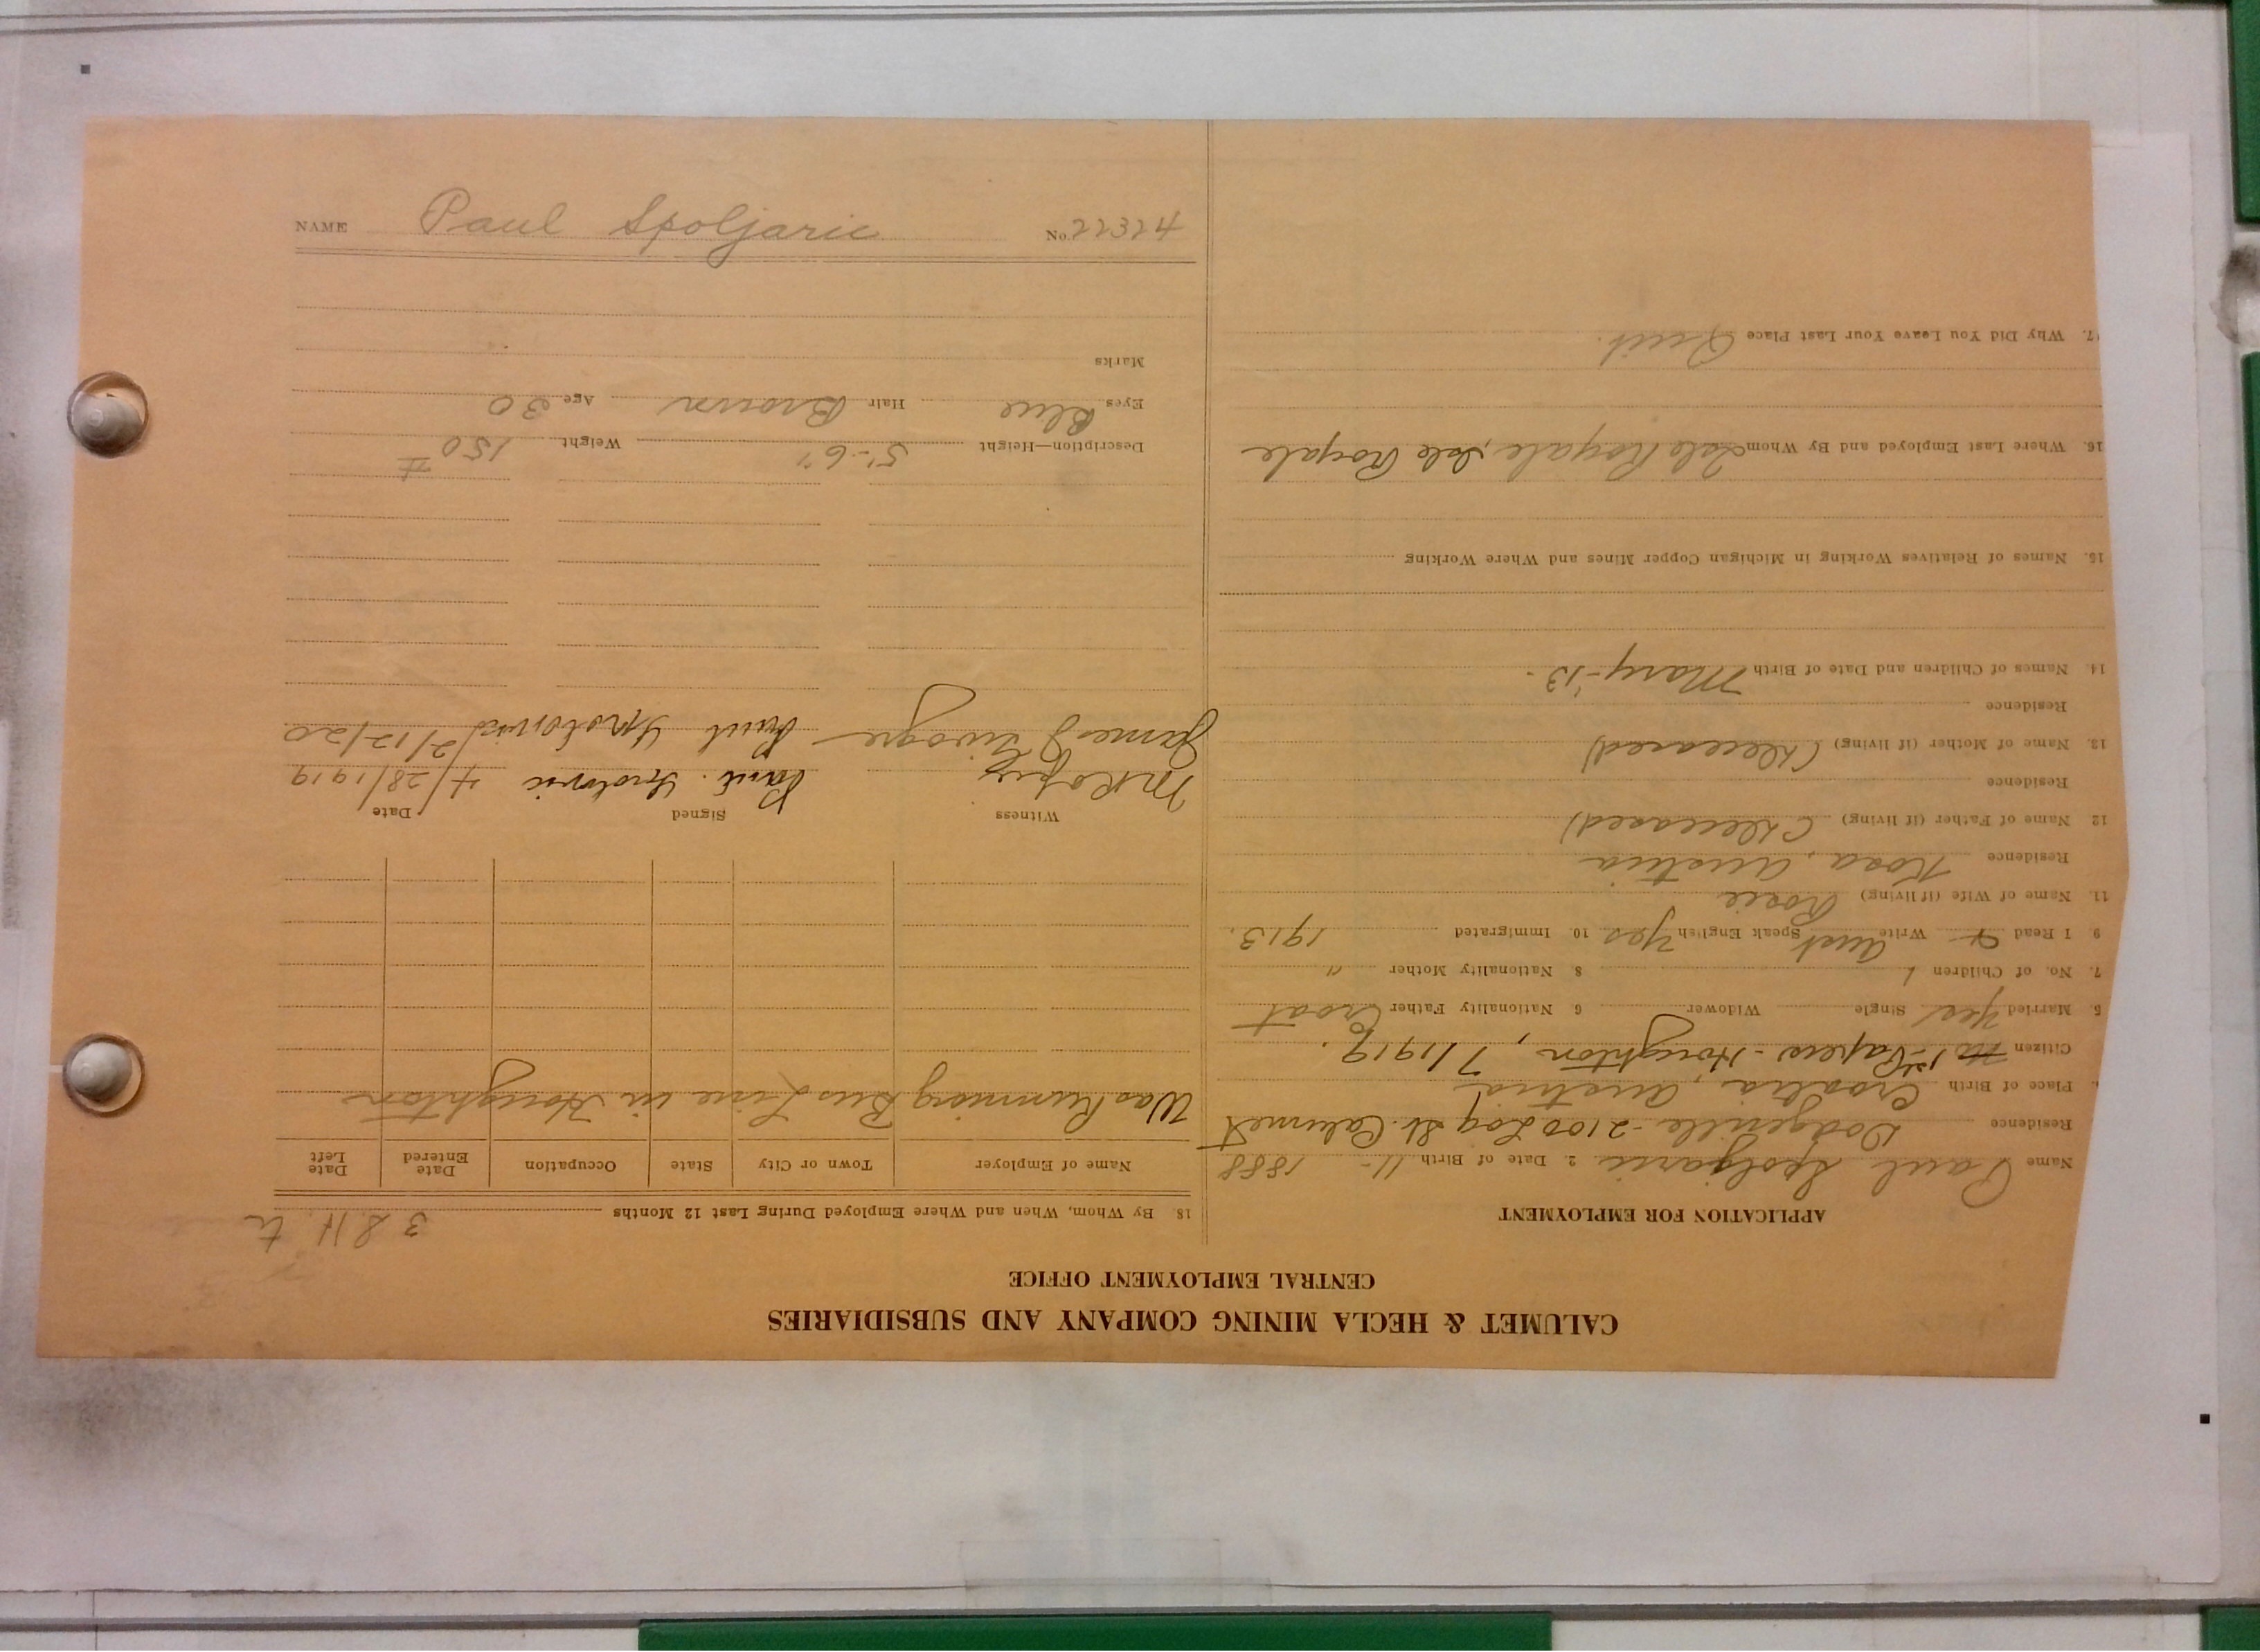 CALUMET & HECLA MINING COMPANY AND SUBSIDIARIES
CENTRAL EMPLOYMENT OFFICE
APPLICATION FOR EMPLOYMENT
Name Paul Spoljaric 2. Date of Birth 11- 1888
Residence Dodgeville - 2100 Log St. Calumet
Place of Birth Croatia, Austria
Citizen No 1st Papers - Houghton, 7/1919.
5. Married Yes Single Widower 6 Nationality Father Croat
7. No. of Children 1 8 Nationality Mother "
9 I Read + Write Aust Speak English Yes 10. Immigrated 1913.
11. Name of Wife (if living) Rosie
Residence Kosa, Austria
12 Name of Father (if living) (Deceased)
Residence
13. Name of Mother (if living) (Deceased)
Residence
14. Names of Children and Date of Birth Mary-'13-
15. Names of Relatives Working in Michigan Copper Mines and Where Working
16. Where Last Employed and By Whom Isle Royale, Isle Royale
17. Why Did You Leave Your Last Place Quit.
3 S. H. tr
18. By Whom, When and Where Employed During Last 12 Months
Name of Employer Town or City State Occupation Date Entered Date Left
Was Running Bus Line in Houghton
Witness Signed Date
4/28/1919
James Paul 2/12/20
Description—Height 5'-6" Weight 150 #
Eyes Blue Hair Brown Age 30
Marks
NAME Paul Spoljaric No. 22324